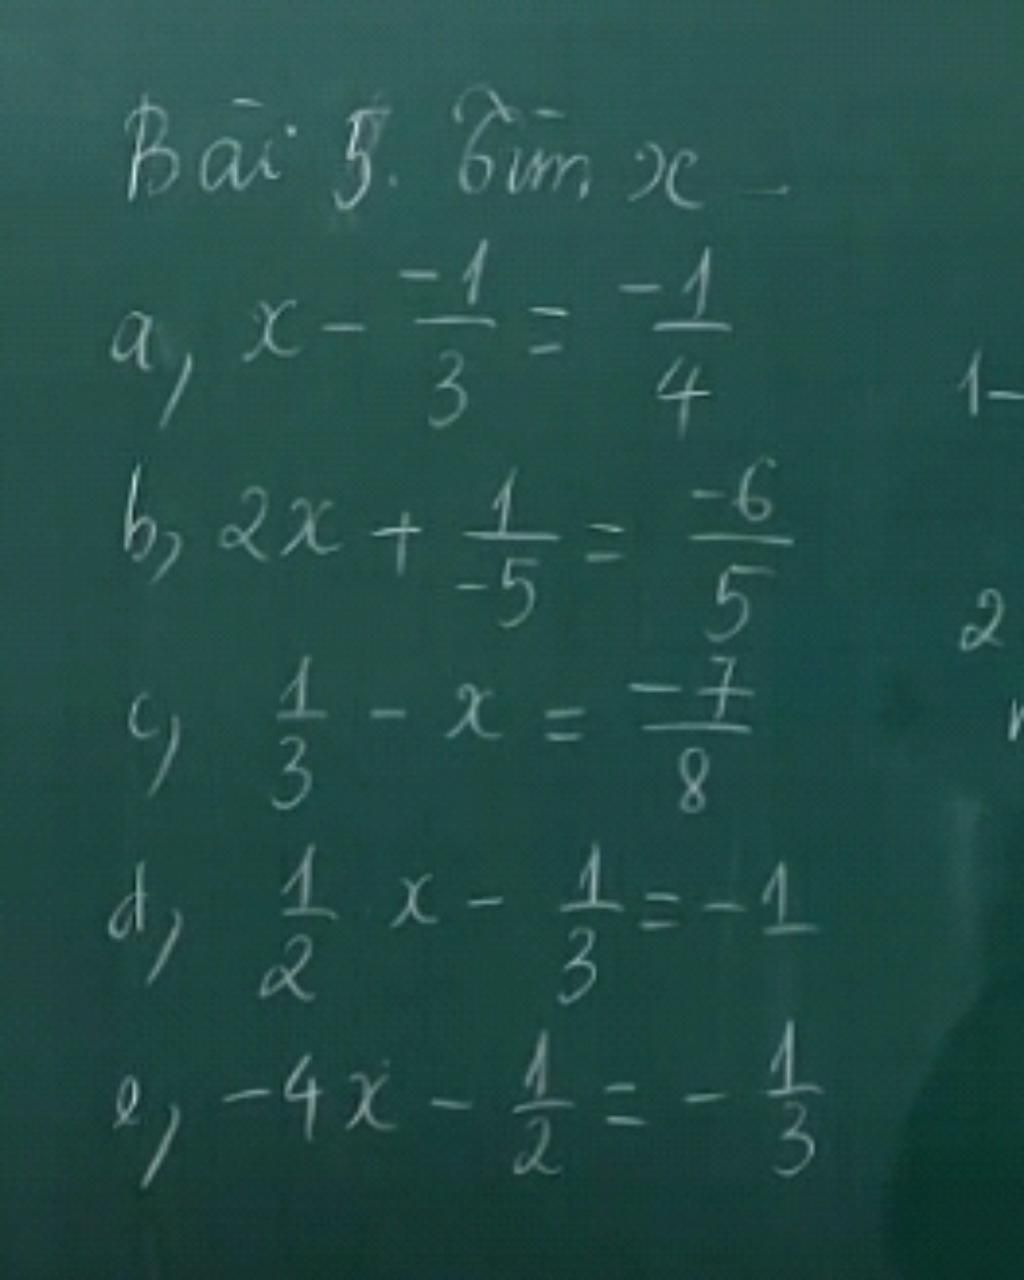 Bài 5. Tìm x
a, x - \frac{-1}{3} = \frac{-1}{4}
b, 2x + \frac{1}{-5} = \frac{-6}{5}
c, \frac{1}{3} - x = \frac{-7}{8}
d, \frac{1}{2} x - \frac{1}{3} = -1
e, -4x - \frac{1}{2} = -\frac{1}{3}
1-
2